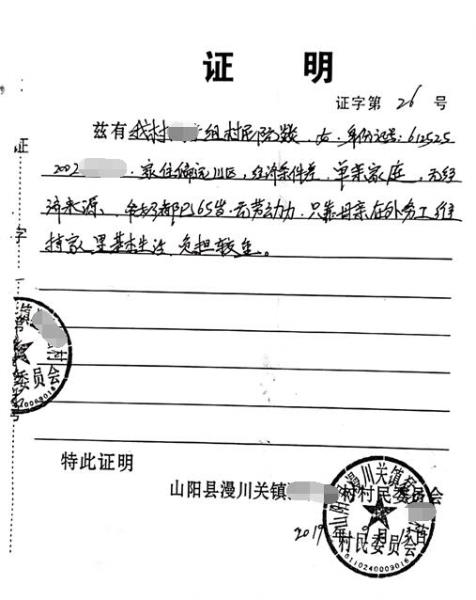 证 明
证字第 26 号
兹有我村 组村民阮数,女,身份证号:612525
2002 .家住偏远川区,经济条件差,单亲家庭,无经
济来源、爷奶都已65岁,无劳动力,只靠母亲在外务工维
持家里基本生活,负担较重。
证
字
第
号
镇 村
委员会
特此证明
山阳县漫川关镇 村村民委员会
2019年9月 日
山阳县漫川关镇
村民委员会
6110240009016